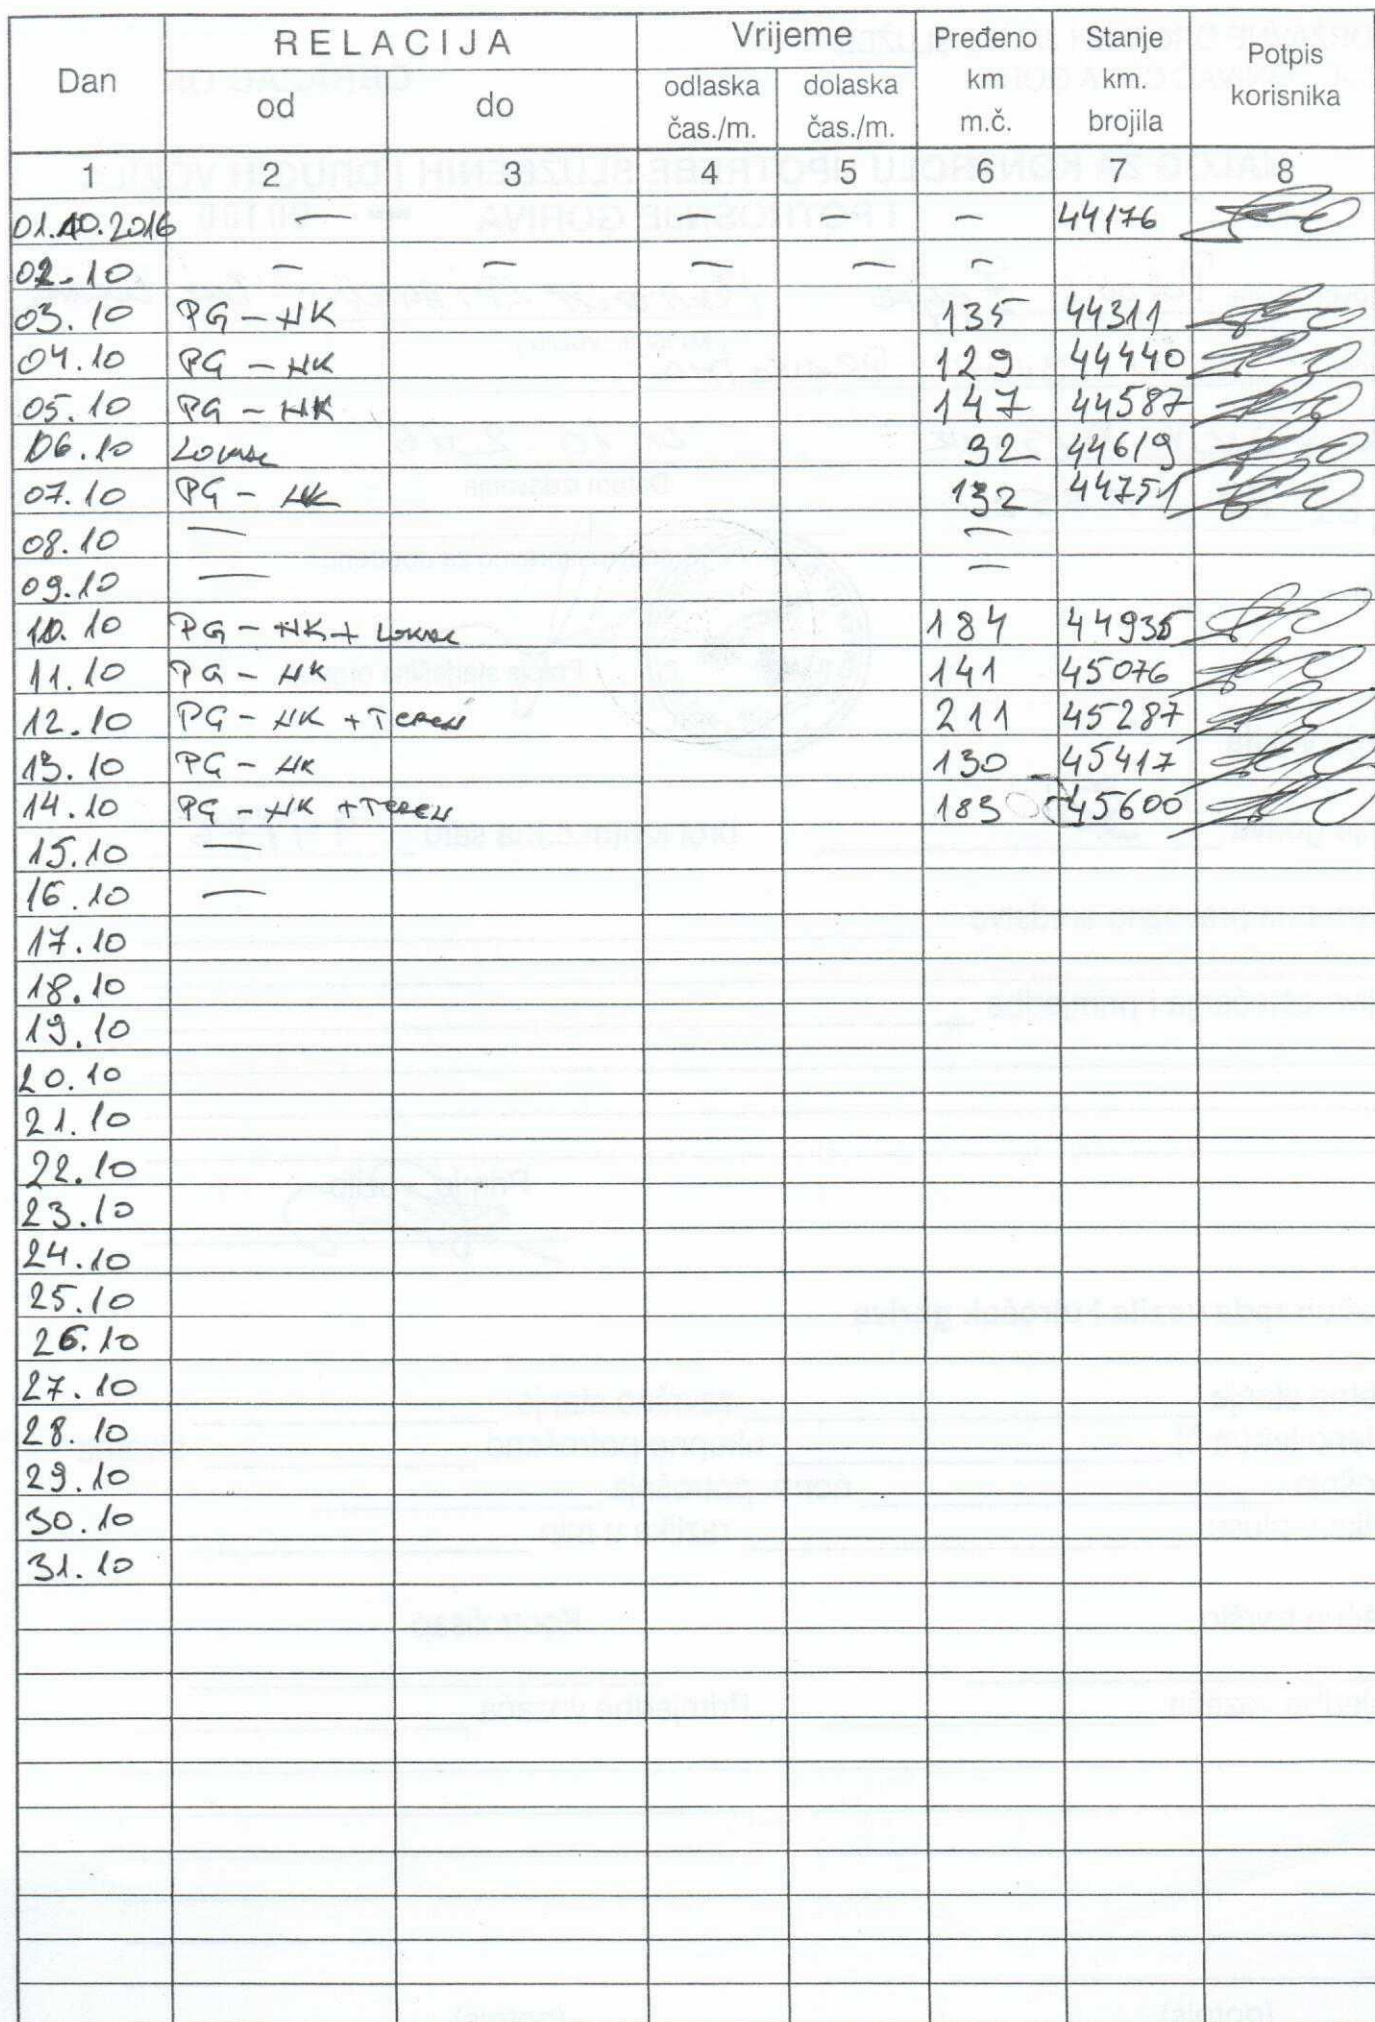 Dan RELACIJA Vrijeme Pređeno km m.č. Stanje km. brojila Potpis korisnika
od do odlaska čas./m. dolaska čas./m.
1 2 3 4 5 6 7 8
01.10.2016 — — — 44176
02.10 — — — — —
03.10 PG - HK 135 44311
04.10 PG - HK 129 44440
05.10 PG - HK 147 44587
06.10 LOKAL 32 44619
07.10 PG - HK 132 44751
08.10 — —
09.10 — —
10.10 PG - HK + LOKAL 184 44935
11.10 PG - HK 141 45076
12.10 PG - HK + TEREN 211 45287
13.10 PG - HK 130 45417
14.10 PG - HK + TEREN 183 45600
15.10 —
16.10 —
17.10
18.10
19.10
20.10
21.10
22.10
23.10
24.10
25.10
26.10
27.10
28.10
29.10
30.10
31.10